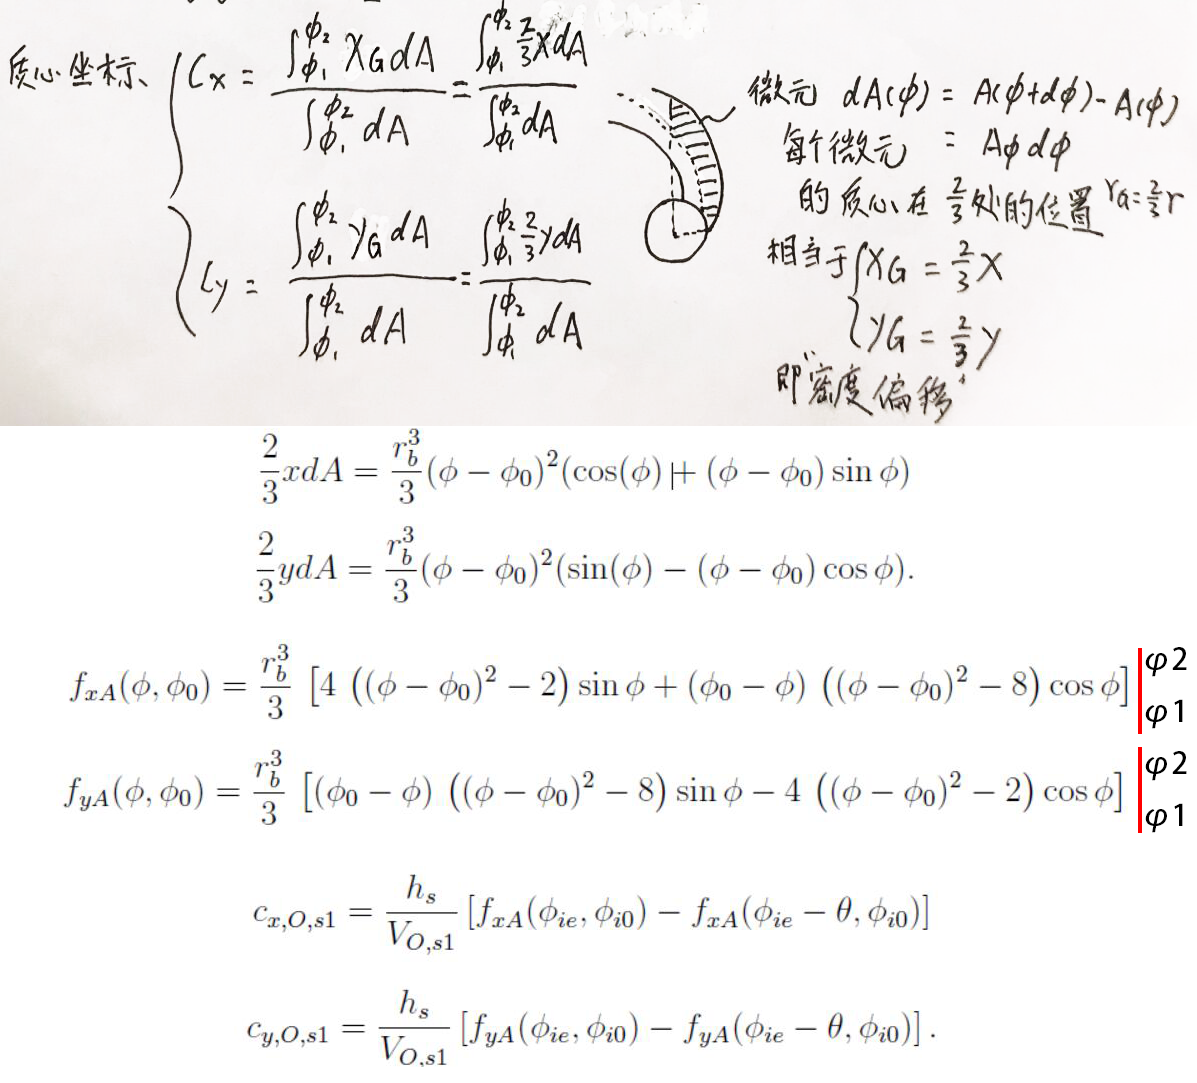 质心坐标、 { Cx = ∫_{ϕ1}^{ϕ2} X_G dA / ∫_{ϕ1}^{ϕ2} dA = ∫_{ϕ1}^{ϕ2} 2/3 X dA / ∫_{ϕ1}^{ϕ2} dA
Cy = ∫_{ϕ1}^{ϕ2} y_G dA / ∫_{ϕ1}^{ϕ2} dA = ∫_{ϕ1}^{ϕ2} 2/3 y dA / ∫_{ϕ1}^{ϕ2} dA
微元 dA(ϕ) = A(ϕ+dϕ)-A(ϕ)
每个微元 = Aϕ dϕ
的质心在 2/3 处的位置 r_G = 2/3 r
相当于 { X_G = 2/3 X
y_G = 2/3 y
即"密度偏移"
2/3 xdA = r_b^3/3 (ϕ − ϕ_0)^2(cos(ϕ) + (ϕ − ϕ_0) sin ϕ)
2/3 ydA = r_b^3/3 (ϕ − ϕ_0)^2(sin(ϕ) − (ϕ − ϕ_0) cos ϕ).
f_{xA}(ϕ, ϕ_0) = r_b^3/3 [4 ((ϕ − ϕ_0)^2 − 2) sin ϕ + (ϕ_0 − ϕ) ((ϕ − ϕ_0)^2 − 8) cos ϕ] | φ2 φ1
f_{yA}(ϕ, ϕ_0) = r_b^3/3 [(ϕ_0 − ϕ) ((ϕ − ϕ_0)^2 − 8) sin ϕ − 4 ((ϕ − ϕ_0)^2 − 2) cos ϕ] | φ2 φ1
c_{x,O,s1} = h_s/V_{O,s1} [f_{xA}(ϕ_{ie}, ϕ_{i0}) − f_{xA}(ϕ_{ie} − θ, ϕ_{i0})]
c_{y,O,s1} = h_s/V_{O,s1} [f_{yA}(ϕ_{ie}, ϕ_{i0}) − f_{yA}(ϕ_{ie} − θ, ϕ_{i0})] .